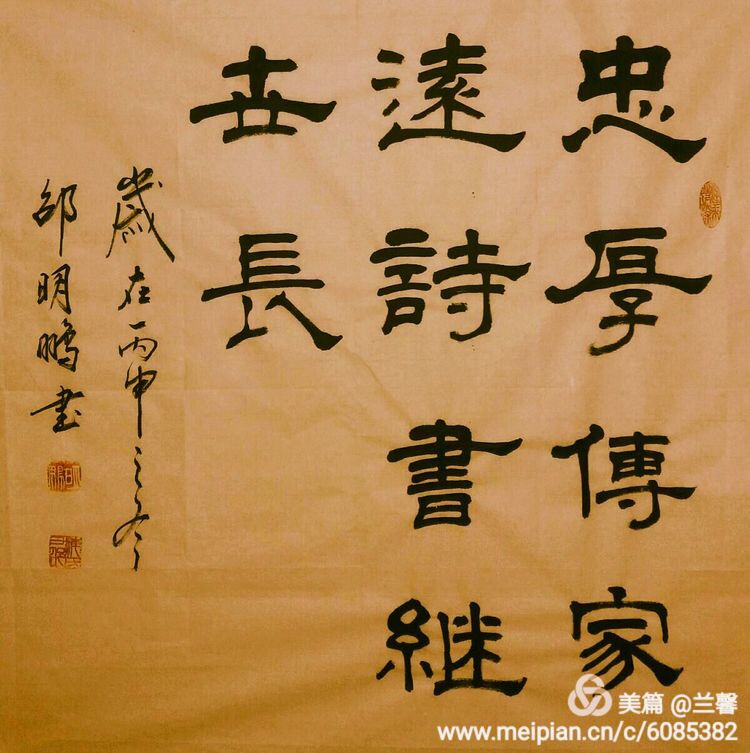 忠厚傳家
遠詩書継
世長
歲在丙申之冬
邵明鵬书
美篇 @兰馨
www.meipian.cn/c/6085382